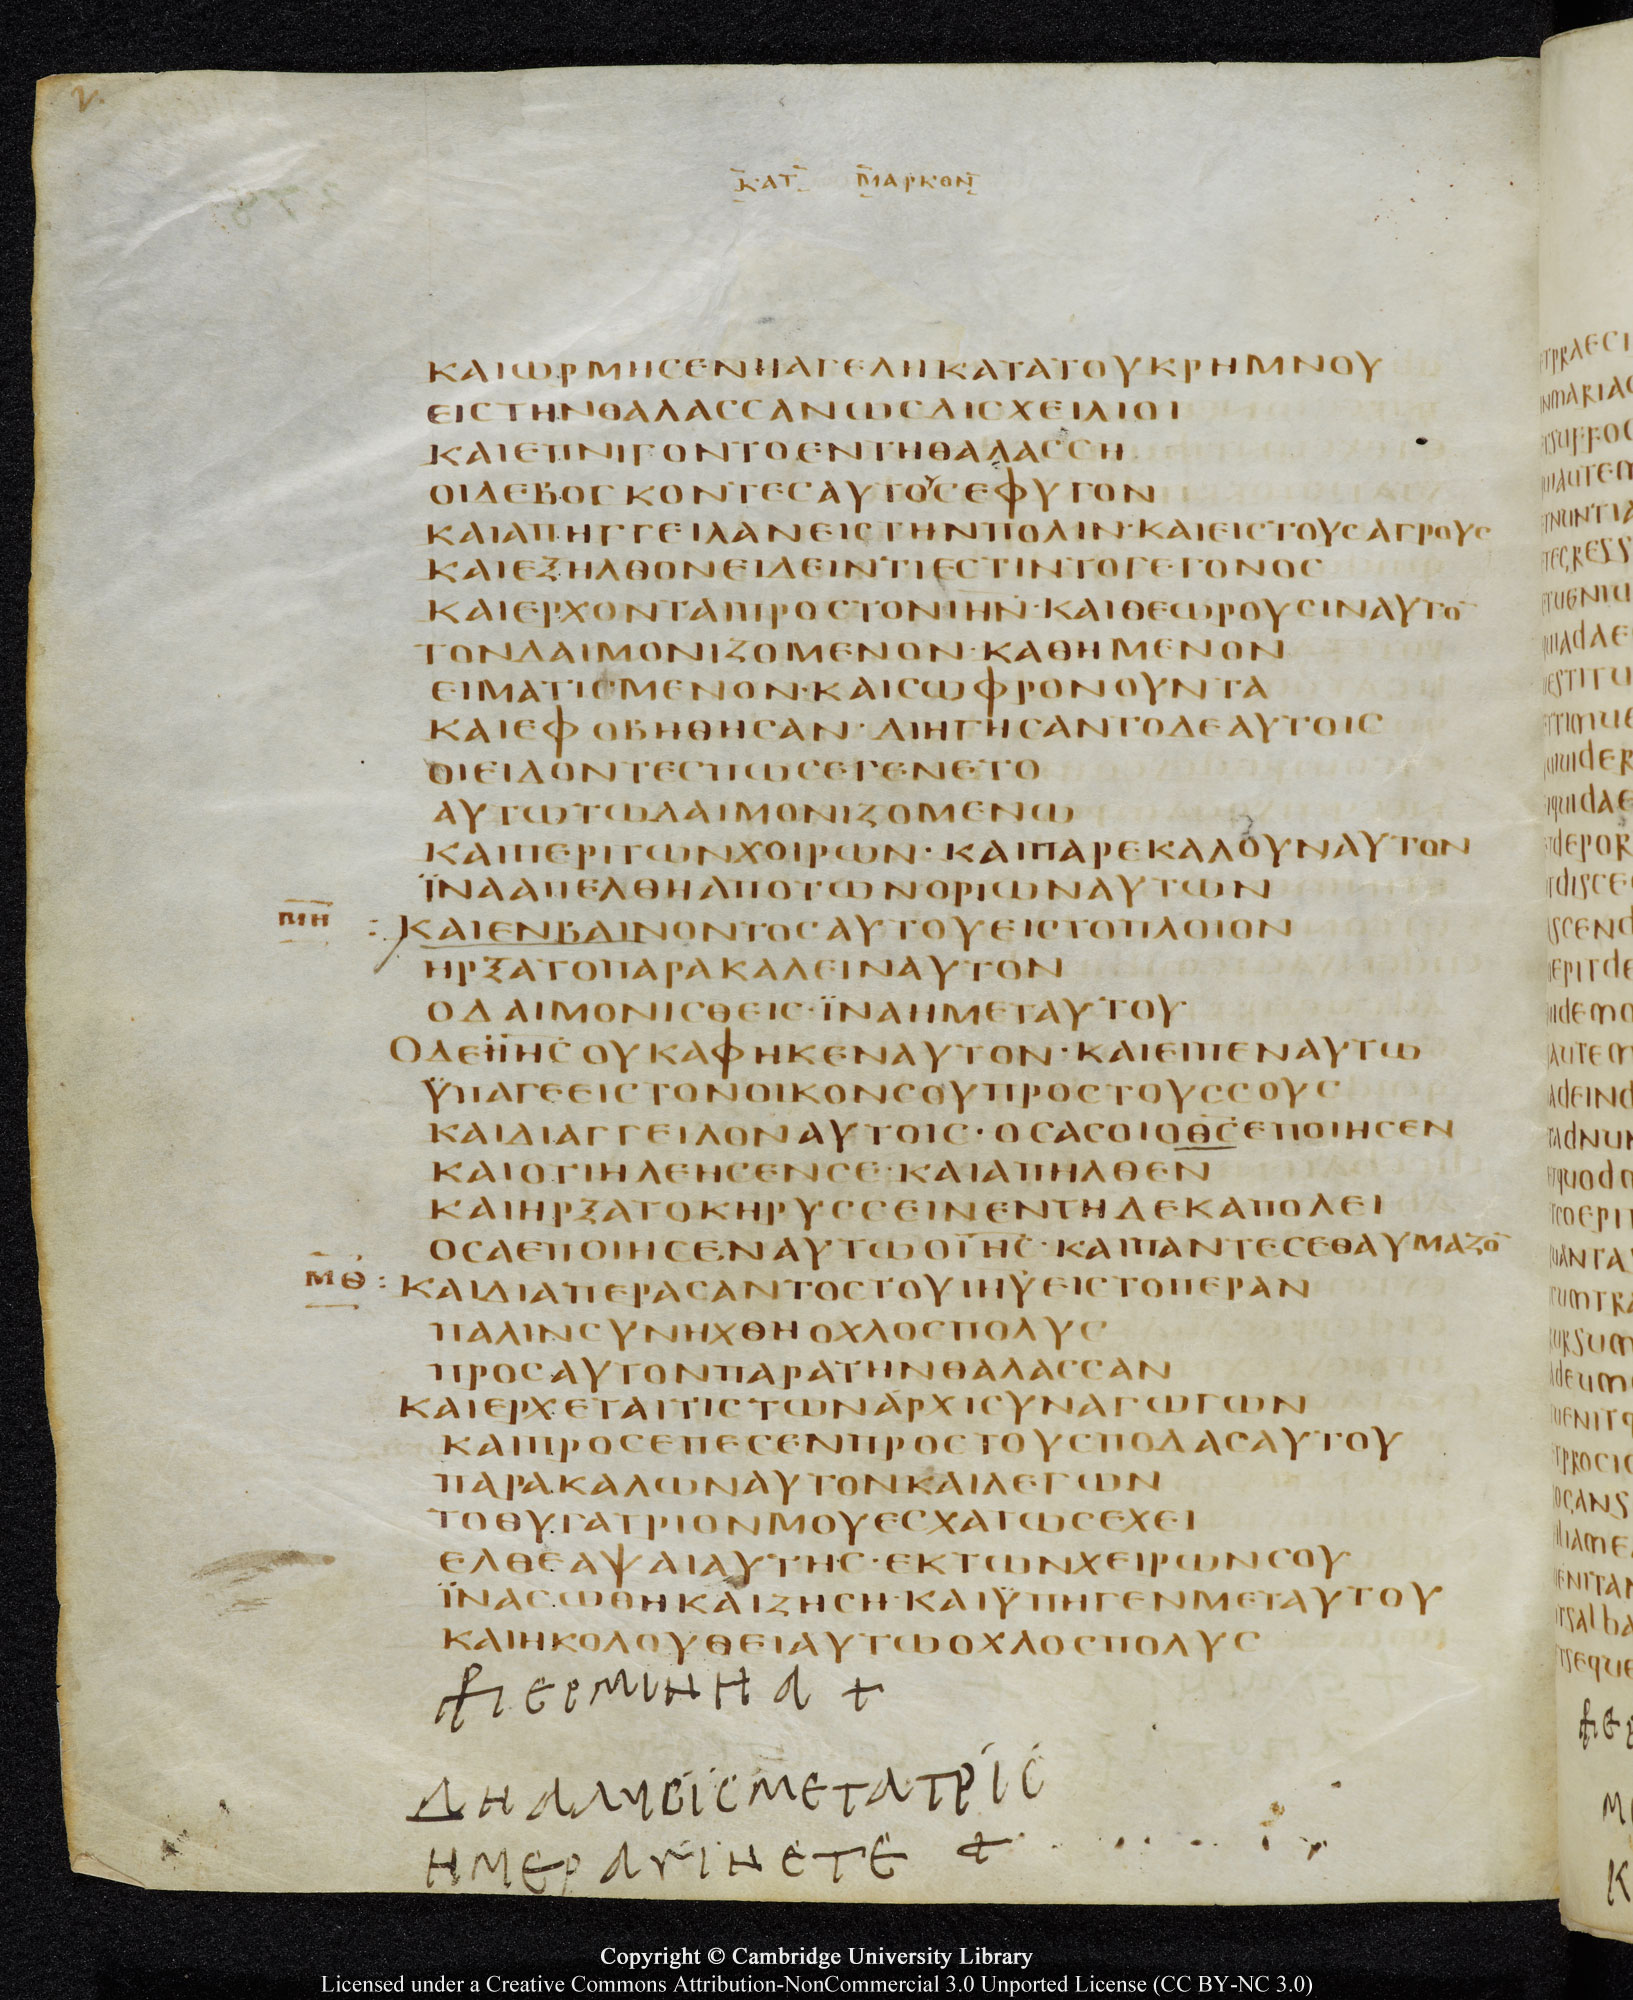 ΚΑΤ ΜΑΡΚΟΝ
ΚΑΙΩΡΜΗCΕΝΗΑΓΕΛΗΚΑΤΑΤΟΥΚΡΗΜΝΟΥ
ΕΙCΤΗΝΘΑΛΑCCΑΝΩCΔΙCΧΕΙΛΙΟΙ
ΚΑΙΕΠΝΙΓΟΝΤΟΕΝΤΗΘΑΛΑCCΗ
ΟΙΔΕΒΟCΚΟΝΤΕCΑΥΤΟΥCΕΦΥΓΟΝ
ΚΑΙΑΠΗΓΓΕΙΛΑΝΕΙCΤΗΝΠΟΛΙΝ·ΚΑΙΕΙCΤΟΥCΑΓΡΟΥC
ΚΑΙΕΞΗΛΘΟΝΕΙΔΕΙΝΤΙΕCΤΙΝΤΟΓΕΓΟΝΟC
ΚΑΙΕΡΧΟΝΤΑΙΠΡΟCΤΟΝΙΗΝ·ΚΑΙΘΕΩΡΟΥCΙΝΑΥΤΟ̅
ΤΟΝΔΑΙΜΟΝΙΖΟΜΕΝΟΝ·ΚΑΘΗΜΕΝΟΝ
ΕΙΜΑΤΙCΜΕΝΟΝ·ΚΑΙCΩΦΡΟΝΟΥΝΤΑ
ΚΑΙΕΦΟΒΗΘΗCΑΝ·ΔΙΗΓΗCΑΝΤΟΔΕΑΥΤΟΙC
ΟΙΕΙΔΟΝΤΕCΠΩCΕΓΕΝΕΤΟ
ΑΥΤΩΤΩΔΑΙΜΟΝΙΖΟΜΕΝΩ
ΚΑΙΠΕΡΙΤΩΝΧΟΙΡΩΝ·ΚΑΙΠΑΡΕΚΑΛΟΥΝΑΥΤΟΝ
ΪΝΑΑΠΕΛΘΗΑΠΟΤΩΝΟΡΙΩΝΑΥΤΩΝ
ΜΗ : ΚΑΙΕΝΒΑΙΝΟΝΤΟCΑΥΤΟΥΕΙCΤΟΠΛΟΙΟΝ
ΗΡΞΑΤΟΠΑΡΑΚΑΛΕΙΝΑΥΤΟΝ
ΟΔΑΙΜΟΝΙCΘΕΙC·ΪΝΑΗΜΕΤΑΥΤΟΥ
ΟΔΕΙΗC̅ΟΥΚΑΦΗΚΕΝΑΥΤΟΝ·ΚΑΙΕΙΠΕΝΑΥΤΩ
ΫΠΑΓΕΕΙCΤΟΝΟΙΚΟΝCΟΥΠΡΟCΤΟΥCCΟΥC
ΚΑΙΔΙΑΓΓΕΙΛΟΝΑΥΤΟΙC·ΟCΑCΟΙΟΘC̅ΕΠΟΙΗCΕΝ
ΚΑΙΟΤΙΗΛΕΗCΕΝCΕ·ΚΑΙΑΠΗΛΘΕΝ
ΚΑΙΗΡΞΑΤΟΚΗΡΥCCΕΙΝΕΝΤΗΔΕΚΑΠΟΛΕΙ
ΟCΑΕΠΟΙΗCΕΝΑΥΤΩΟΙΗC̅·ΚΑΙΠΑΝΤΕCΕΘΑΥΜΑΖΟ̅
ΜΘ : ΚΑΙΔΙΑΠΕΡΑCΑΝΤΟCΤΟΥΙΗΥ̅ΕΙCΤΟΠΕΡΑΝ
ΠΑΛΙΝCΥΝΗΧΘΗΟΧΛΟCΠΟΛΥC
ΠΡΟCΑΥΤΟΝΠΑΡΑΤΗΝΘΑΛΑCCΑΝ
ΚΑΙΕΡΧΕΤΑΙΤΙCΤΩΝΑΡΧΙCΥΝΑΓΩΓΩΝ
ΚΑΙΠΡΟCΕΠΕCΕΝΠΡΟCΤΟΥCΠΟΔΑCΑΥΤΟΥ
ΠΑΡΑΚΑΛΩΝΑΥΤΟΝΚΑΙΛΕΓΩΝ
ΤΟΘΥΓΑΤΡΙΟΝΜΟΥΕCΧΑΤΩCΕΧΕΙ
ΕΛΘΕΑΨΑΙΑΥΤΗC·ΕΚΤΩΝΧΕΙΡΩΝCΟΥ
ΪΝΑCΩΘΗΚΑΙΖΗCΗ·ΚΑΙΫΠΗΓΕΝΜΕΤΑΥΤΟΥ
ΚΑΙΗΚΟΛΟΥΘΕΙΑΥΤΩΟΧΛΟCΠΟΛΥC
ΕΡΜΙΝΗΑ +
ΔΗΑΛΥCΙCΜΕΤΑΤΡΙC
ΗΜΕΡΑΓΙΝΕΤΕ +
Copyright © Cambridge University Library
Licensed under a Creative Commons Attribution-NonCommercial 3.0 Unported License (CC BY-NC 3.0)